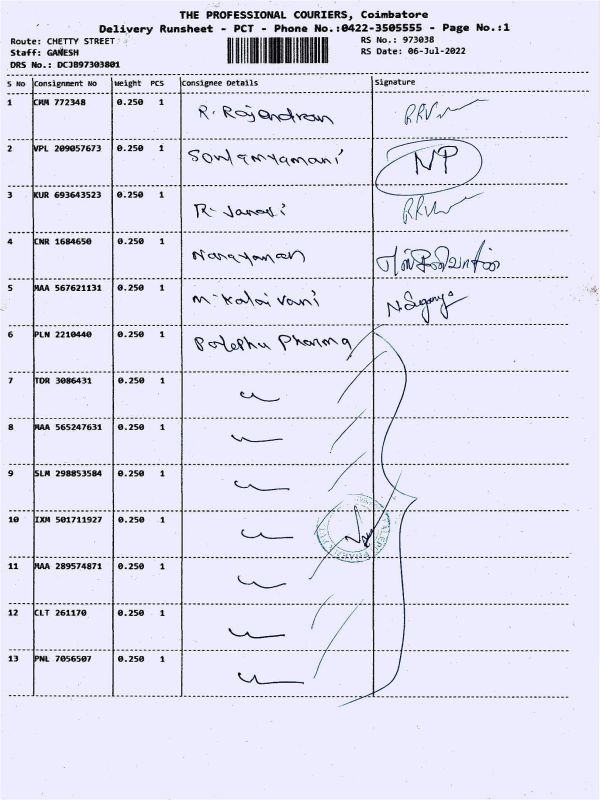 THE PROFESSIONAL COURIERS, Coimbatore
Delivery Runsheet - PCT - Phone No.:0422-3505555 - Page No.:1
Route: CHETTY STREET RS No.: 973038
Staff: GANESH RS Date: 06-Jul-2022
DRS No.: DCJB97303801
S No Consignment No Weight PCS Consignee Details Signature
1 CMM 772348 0.250 1 R. Rajendran
2 VPL 209057673 0.250 1 NP
3 KUR 693643523 0.250 1 R.
4 CNR 1684650 0.250 1 Narayanan
5 MAA 567621131 0.250 1 M. Kalai vani
6 PLN 2210440 0.250 1 Pharma
7 TDR 3086431 0.250 1
8 MAA 565247631 0.250 1
9 SLM 298853584 0.250 1
10 IXM 501711927 0.250 1
11 MAA 289574871 0.250 1
12 CLT 261170 0.250 1
13 PNL 7056507 0.250 1